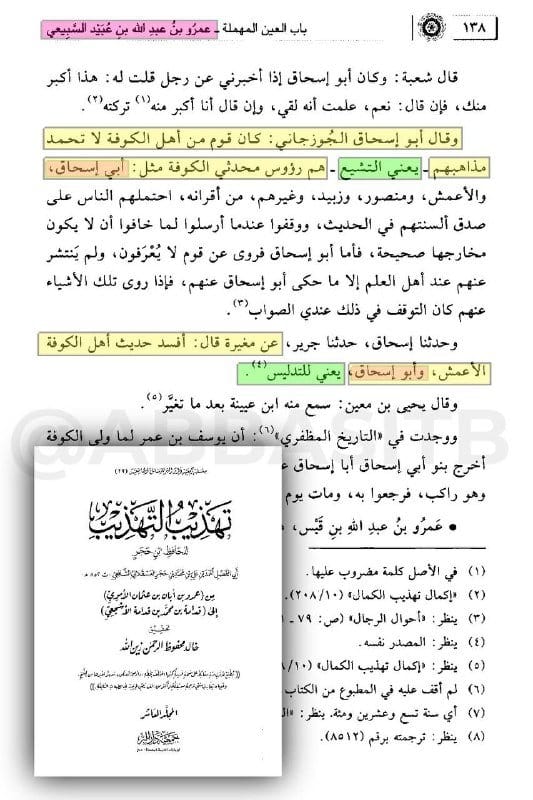 ١٣٨
باب العين المهملة - عمرُو بنُ عبدِ الله بنِ عُبَيْد السَّبِيعي
قال شعبة: وكان أبو إسحاق إذا أخبرني عن رجل قلت له: هذا أكبر
منك، فإن قال: نعم، علمت أنه لقي، وإن قال أنا أكبر منه(١) تركته(٢).
وقال أبو إسحاق الجُوزجاني: كان قوم من أهل الكوفة لا تحمد
مذاهبهم - يعني التشيع - هم رؤوس محدثي الكوفة مثل: أبي إسحاق،
والأعمش، ومنصور، وزبيد، وغيرهم، من أقرانه، احتملهم الناس على
صدق ألسنتهم في الحديث، ووقفوا عندما أرسلوا لما خافوا أن لا يكون
مخارجها صحيحة، فأما أبو إسحاق فروى عن قوم لا يُعْرَفون، ولم يَنتشر
عنهم عند أهل العلم إلا ما حكى أبو إسحاق عنهم، فإذا روى تلك الأشياء
عنهم كان التوقف في ذلك عندي الصواب(٣).
وحدثنا إسحاق، حدثنا جرير، عن مغيرة قال: أفسد حديث أهل الكوفة
الأعمش، وأبو إسحاق، يعني للتدليس(٤).
وقال يحيى بن معين: سمع منه ابن عيينة بعد ما تغيَّر(٥).
ووجدت في «التاريخ المظفري»(٦): أن يوسف بن عمر لما ولي الكوفة
أخرج بنو أبي إسحاق أبا إسحاق
وهو راكب، فرجعوا به، ومات يوم
• عَمرُو بنُ عبدِ الله بنِ قَيْس،
(١) في الأصل كلمة مضروب عليها.
(٢) «إكمال تهذيب الكمال» (٢٠٨/١٠).
(٣) ينظر: «أحوال الرجال» (ص: ٧٩ -
(٤) ينظر: المصدر نفسه.
(٥) ينظر: «إكمال تهذيب الكمال»
(٦) لم أقف عليه في المطبوع من الكتاب
(٧) أي سنة تسع وعشرين ومئة. ينظر:
(٨) ينظر: ترجمته برقم (٨٥١٢).
@ABBASITB
تهذيب التهذيب
للحافظ ابن حجر
من (عمرو بن أبان بن عثمان الأموي)
إلى (قدامة بن محمد بن قدامة الأشجعي)
تحقيق
خالد محفوظ الرحمن زين الله
المجلد العاشر